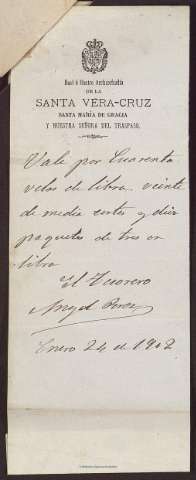 Real é Ilustre Archicofradía
DE LA
SANTA VERA-CRUZ
SANTA MARÍA DE GRACIA
Y NUESTRA SEÑORA DEL TRASPASO.
Vale por Cuarenta
velas de libra, veinte
de media cortes y diez
paquetes de tres en
libra
El Tesorero
Angel Perez
Enero 24 de 1902